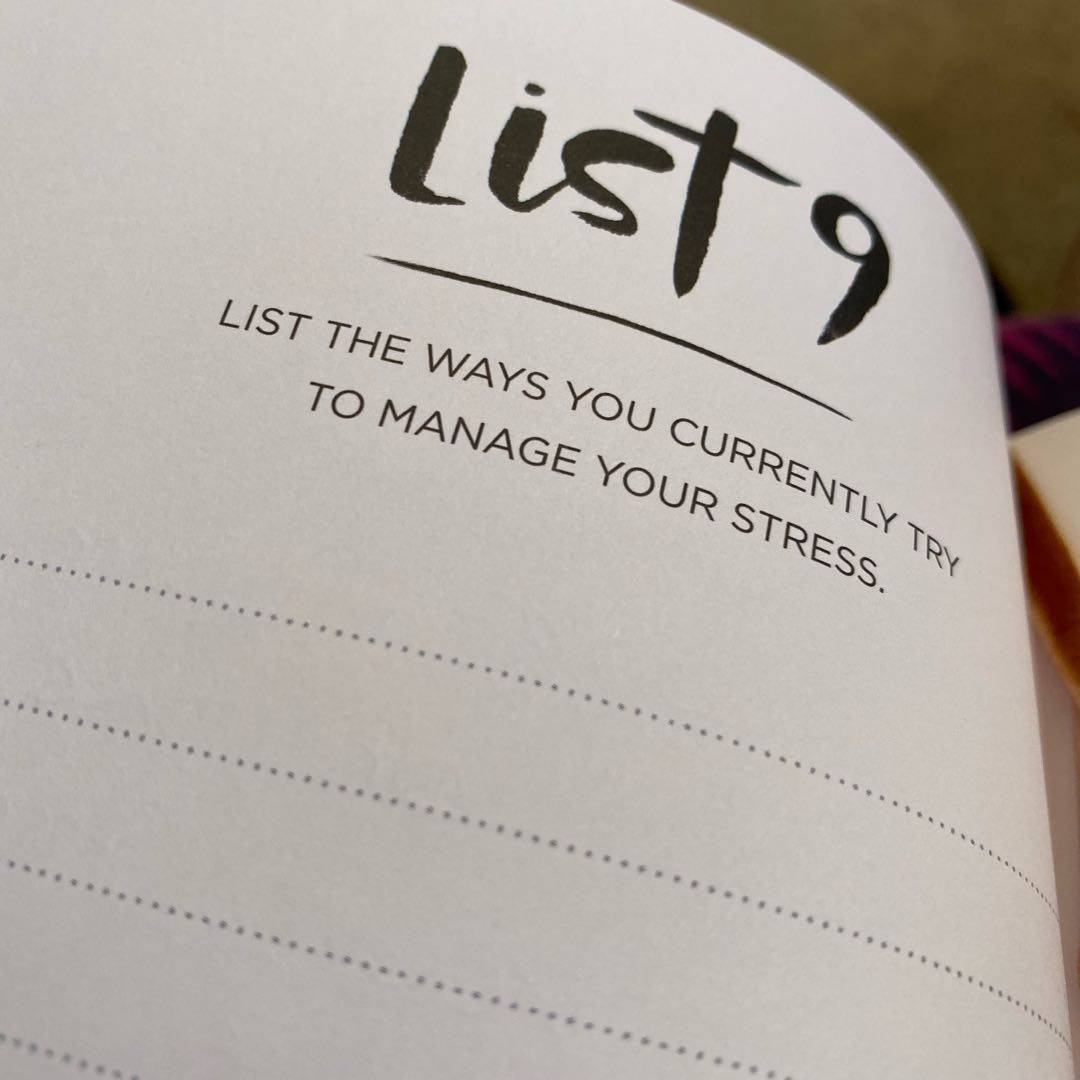 List 9
LIST THE WAYS YOU CURRENTLY TRY
TO MANAGE YOUR STRESS.